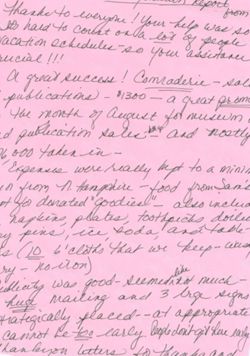 Report from
Thanks to everyone! Your help was so
It's hard to count on a lot of people
vacation schedules - so your assistance
crucial!!!
A great success! Comraderie - sale
publications - $1300 - a great
the month of August for museum
publication sales - and mostly
000 taken in -
Expenses were really kept to a mini
from N. Hampshire - food from
for donated "goodies" - also includ
napkins, plates, toothpicks, doilie
pins, ice soda and table-
(10 6' cloths that we keep - wash
ry - no iron)
blicity was good - seemed like much
huge mailing and 3 lrge signs
rategically placed - at appropriate
cannot be too early (people don't get here
thank you letters to